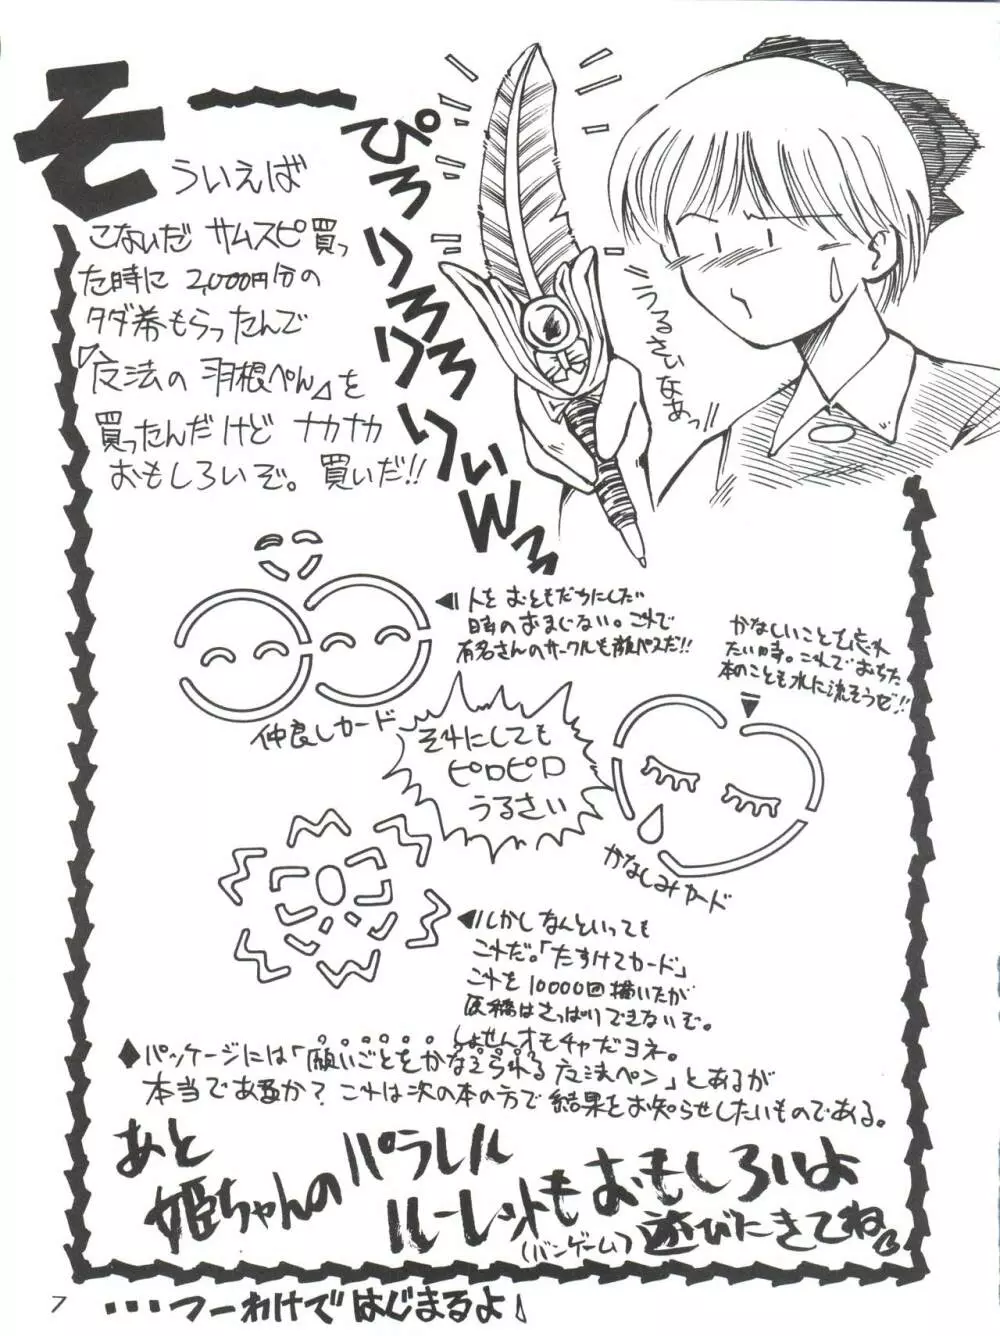 そーういえば
こないだ サムスピ買っ
た時に 2,000円分の
タダ券もらったんで
「広法の羽根ぺん」を
買ったんだけど ナカナカ
おもしろいぞ。買いだ!!
ぴろりろりろりろりぃW
うるさいなあっ!!
人をおともだちにしたい
時のおまじない。これで
有名さんのサークルも顔パスだ!!
仲良しカード
かなしいことを忘れ
たい時。これでおちた
本のことも水に流そうぜ!!
かなしみカード
それにしても
ピロピロ
うるさい
しかしなんといっても
これだ。「たすけてカード」
これを10000回描いたが
原稿はさっぱりできないぞ。
しょせんオモチャだヨネ。
◆パッケージには「願いごとをかなえられる広法ペン」とあるが
本当であるか? これは次の本の方で結果をお知らせしたいものである。
あと
姫ちゃんのパラレル
ルーレットもおもしろいよ
(バンゲーム)遊びにきてね
7
・・・つーわけではじまるよ